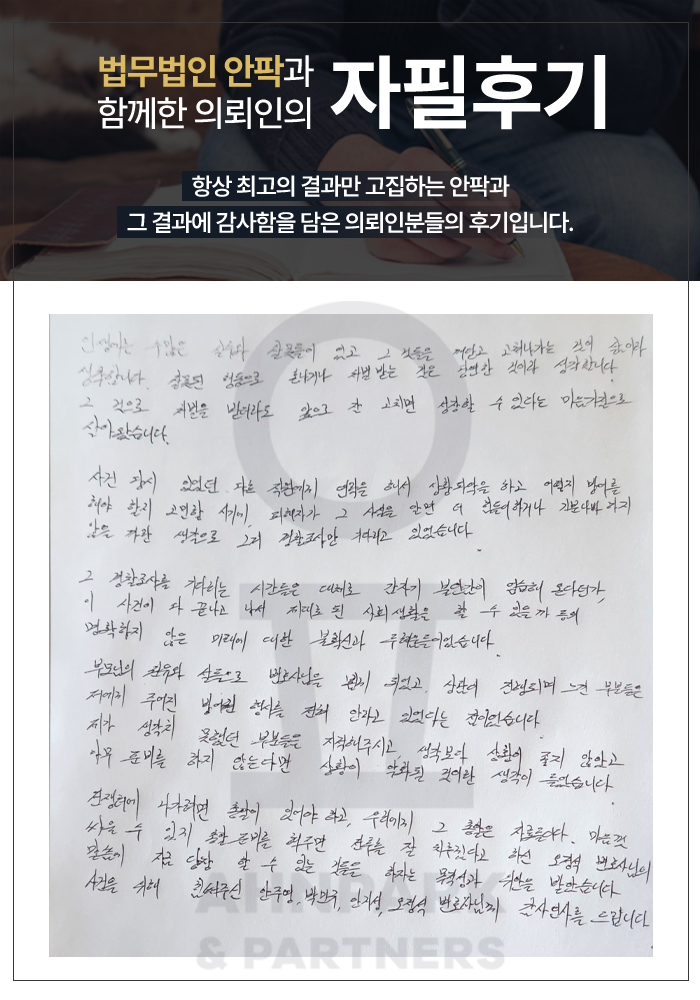 법무법인 안팍과
함께한 의뢰인의
자필후기
항상 최고의 결과만 고집하는 안팍과
그 결과에 감사함을 담은 의뢰인분들의 후기입니다.
인생에는 수많은 실수와 잘못들이 있고 그 것들을 깨닫고 고쳐나가는 것이 삶이라
생각합니다. 잘못된 행동으로 혼나거나 처벌 받는 것은 당연한 것이라 생각합니다.
그 것으로 처벌을 받더라도 앞으로 잘 고치면 성장할 수 있다는 마음가짐으로
살아왔습니다.
사건 당시 있었던 연락을 해서 상황파악을 하고 어떻게 방어를
해야 할지 고민할 시기에, 피해자가 그 사실을 알면 더 힘들어하거나 기분나빠 하지
않을까란 생각으로 그저 경찰조사만 기다리고 있었습니다.
그 경찰조사를 기다리는 시간들은 대체로 갑자기 불안감이 엄습해 온다던가,
이 사건이 다 끝나고 나서 제대로 된 사회생활을 할 수 있을까 등의
명확하지 않은 미래에 대한 불확신과 두려움들이었습니다.
부모님의 권유와 변호사님을 뵙게 되었고, 상담이 진행되며 느낀 부분들은
저에게 주어진 방어권 행사를 전혀 안하고 있었다는 점이었습니다.
제가 생각치 못했던 부분들은 지적해주시고, 생각보다 상황이 좋지 않았고
아무 준비를 하지 않는다면 상황이 악화될 것이란 생각이 들었습니다.
전쟁터에 나가려면 총알이 있어야 하고, 우리에게 그 총알은 자료들이다. 마음껏
싸울 수 있게 총알 준비를 해주면 전투를 잘 치루겠다고 하신 오경석 변호사님의
말씀이 지금 당장 할 수 있는 것들을 하자는 목적성과 위안을 받았습니다.
사건을 위해 힘써주신 안주영, 박민규, 안지성, 오경석 변호사님께 감사인사를 드립니다.
AHNPARK
& PARTNERS